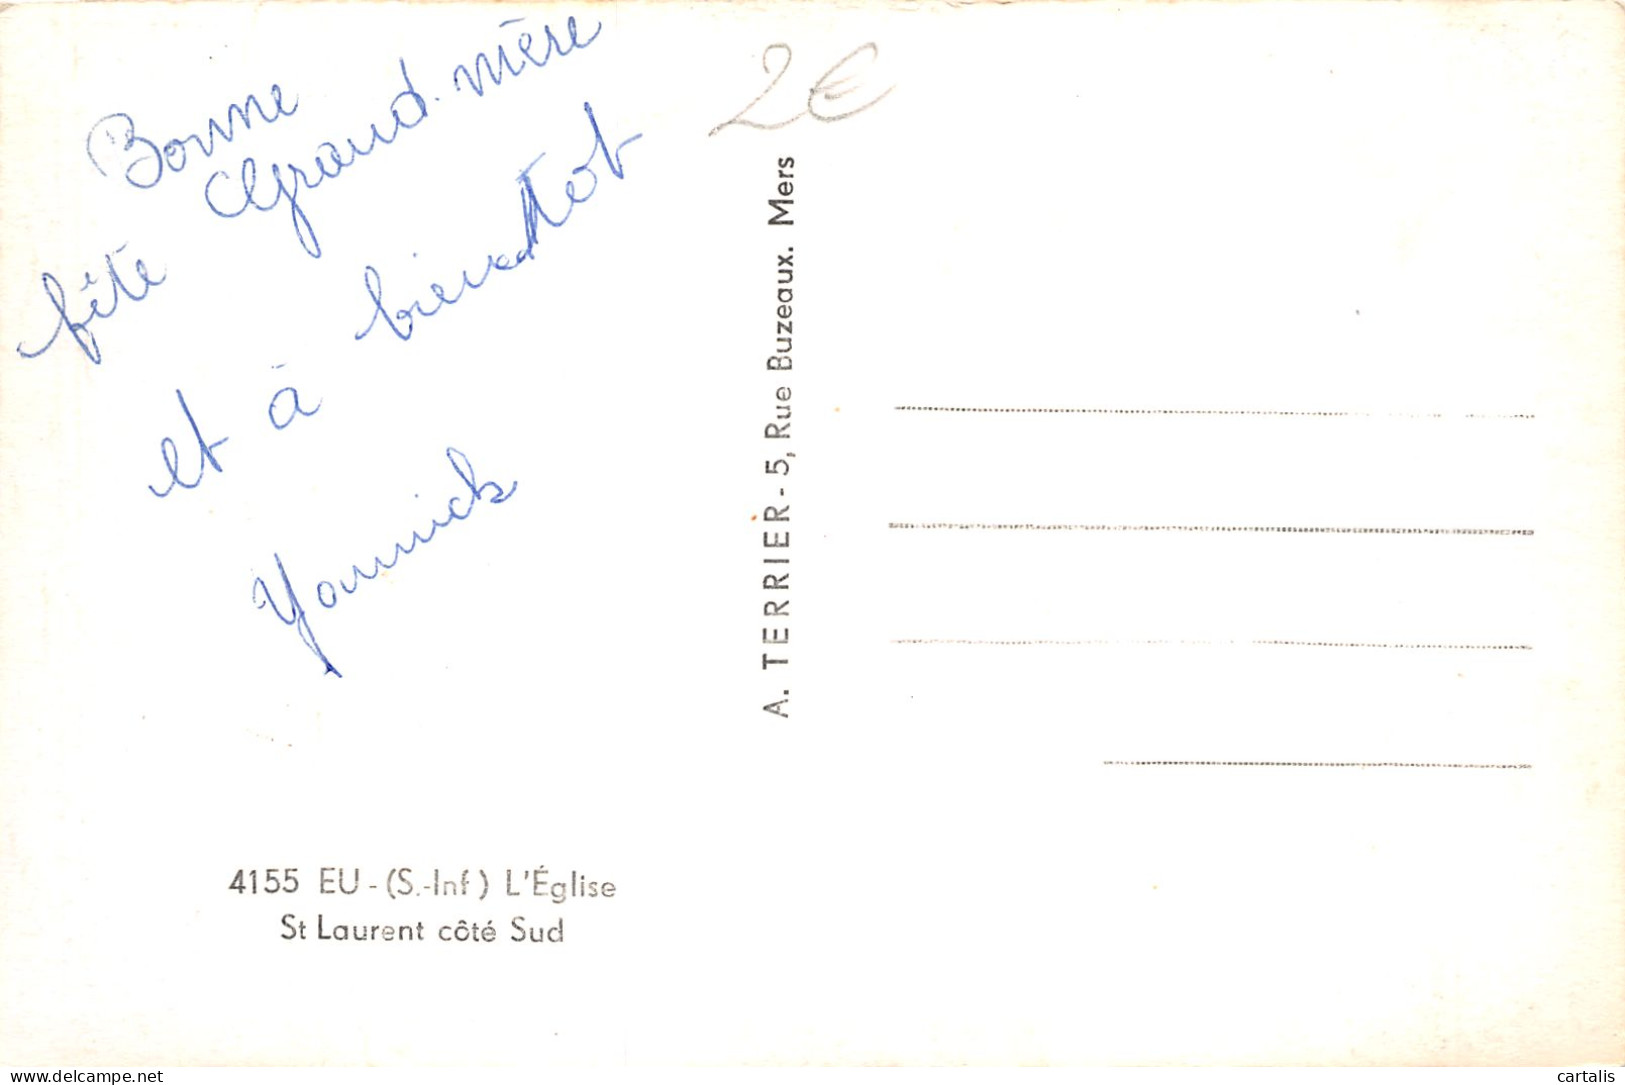 Bonne
fête Grand-mère
et à bientôt
Yannick
2€
A. TERRIER - 5, Rue Buzeaux. Mers
4155 EU - (S.-Inf) L'Église
St Laurent côté Sud
www.delcampe.net
cartalis